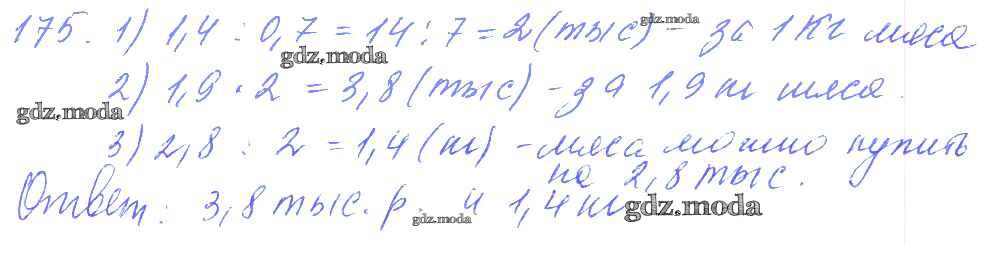 175. 1) 1,4 : 0,7 = 14 : 7 = 2 (тыс) - за 1 кг мяса
gdz.moda
gdz.moda
2) 1,9 · 2 = 3,8 (тыс) - за 1,9 кг мяса.
gdz.moda
3) 2,8 : 2 = 1,4 (кг) - мяса можно купить
на 2,8 тыс.
Ответ: 3,8 тыс. р. и 1,4 кг
gdz.moda
gdz.moda